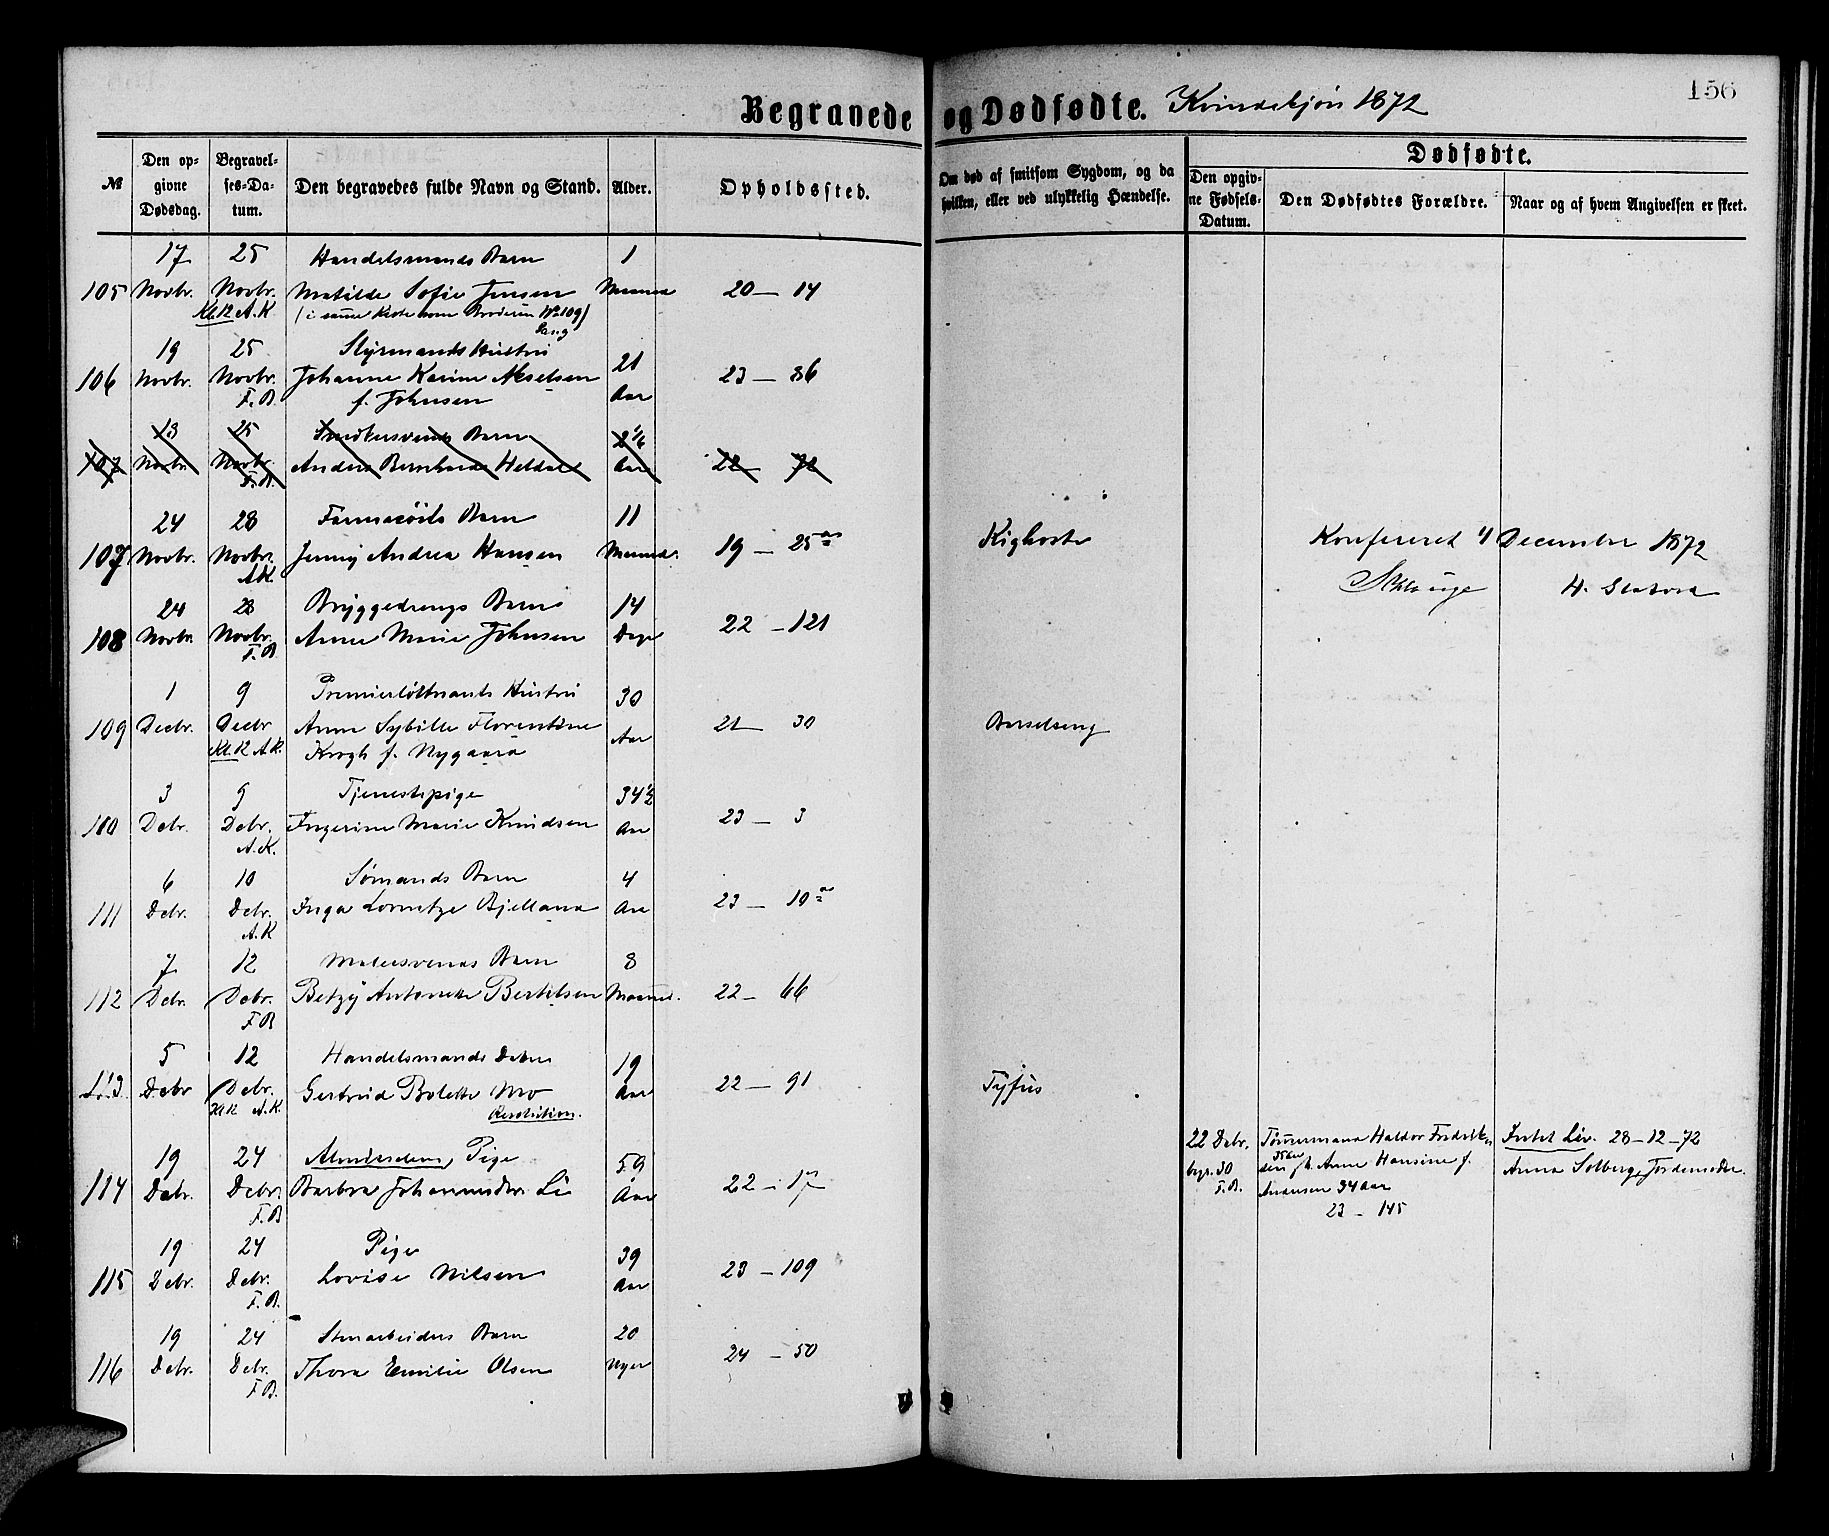 156
Begravede og Dødfødte. Kvindekjøn 1872
№
Den opgivne Dødsdag.
Begravelses-Datum.
Den begravedes fulde Navn og Stand.
Alder.
Opholdssted.
Om død af smitsom Sygdom, og da hvilken, eller ved ulykkelig Hændelse.
Dødfødte.
Den opgivne Fødsels-Datum.
Den Dødfødtes Forældre.
Naar og af hvem Angivelsen er skeet.
17 25 Handelsmands Barn 1
105 Novbr. Novbr. Matilde Sofie Jensen Maaned 20 — 14
Kl. 12 A.K. (i samme Kiste som Broderen No 109)
19 25 Styrmands Hustru 21
106 Novbr. Novbr. Johanne Karine Akselsen Aar 23 — 36
F.B. f. Johnsen
13 25 Snedkersvends Barn 2 1/6
107 Novbr. Novbr. Anders Bernhard Heldal Aar 22 72
F.B.
24 28 Barn 11
107 Novbr. Novbr. Jenny Andrea Hansen Maaned. 19 — 25 Kighoste
A.K.
Konfereret 4 December 1872
24 28 Bryggedrengs Barn 14
108 Novbr. Novbr. Anne Marie Johnsen Dage 22 — 121
F.B.
1 9 Premierløitnants Hustru 30
109 Decbr. Decbr Anne Sybille Florentine Aar 21 30 Barselseng
Kl. 12 A.K. Krogh f. Nygaard
3 9 Tjenestepige 34 1/2
110 Debr. Debr. Ingerine Marie Knudsen Aar 23 — 3
A.K.
6 10 Sømands Barn 4
111 Debr. Debr. Inga Lovretze Bjelland Aar 23 — 19
A.K
7 12 Malersvends Barn 8
112 Debr. Debr. Betzy Antonette Bertelsen Maaned. 22 — 66
F.B
5 12 Handelsmands Datter 19
113 Debr Debr. Gertrud Bolette Mo Aar 22 — 91 Tyfus
Kl 12 A.K. Resolution.
22 Debr. Tømmermand Haldor Fredriksen 35 Aar, h. Anne Hansine f. Andersen 34 Aar Intet Liv. 28-12-72
begr. 30 F.B. 23 — 145 Anna Solberg Jordemoder.
19 24 Almisselem, Pige 59
114 Debr. Debr. Barbra Johannesdtr. Li Aar 22 — 17
F.B
19 24 Pige 39
115 Debr. Debr. Lovise Nilsen Aar 23 — 109
F.B.
19 24 Stenarbeiders Barn 20
116 Debr. Debr. Thora Emilie Olsen Uger 24 — 50
F.B.